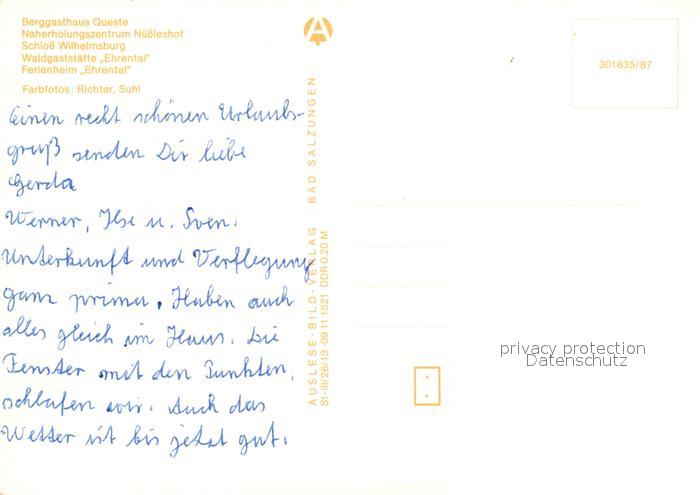 Berggasthaus Queste
Naherholungszentrum Nüßleshof
Schloß Wilhelmsburg
Waldgaststätte „Ehrental"
Ferienheim „Ehrental"
Farbfotos: Richter, Suhl
Einen recht schönen Urlaubs-
gruß senden Dir liebe
Gerda
Werner, Ilse u. Sven.
Unterkunft und Verflegung
ganz prima. Haben auch
alles gleich im Haus. Die
Fenster mit den Punkten,
schlafen wir. Auch das
Wetter ist bis jetzt gut.
AUSLESE-BILD-VERLAG · BAD SALZUNGEN
St-III/26/13 · 09 11 1521 DDR 0,20 M
301635/87
privacy protection
Datenschutz